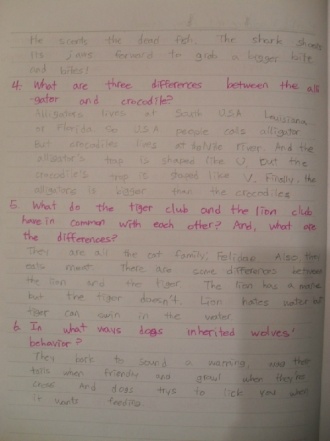 He scents the dead fish. The shark shoves
its jaws forward to grab a bigger bite
and bites!
4. What are three differences between the alli
-gator and crocodile?
Alligators lives at South USA Louisiana
or Florida. So USA people eats alligator.
But crocodiles lives at River. And the
alligator's is shaped like U, but the
crocodile's is shaped like V. Finally, the
alligators is bigger than the crocodiles
5. What do the tiger club and the lion club
have in common with each other? And, what are
the differences?
They are all the cat family, Felidae. Also they
eats meat. There are some differences between
the lion and the tiger. The lion has a mane
but the tiger doesn't. Lion hates water but
tiger can swim in the water.
6. In what ways dogs inherited wolves'
behavior?
They bark to sound a warning, wag their
tails when friendly and growl when they're
cross. And dogs trys to lick you when
it wants feeding.